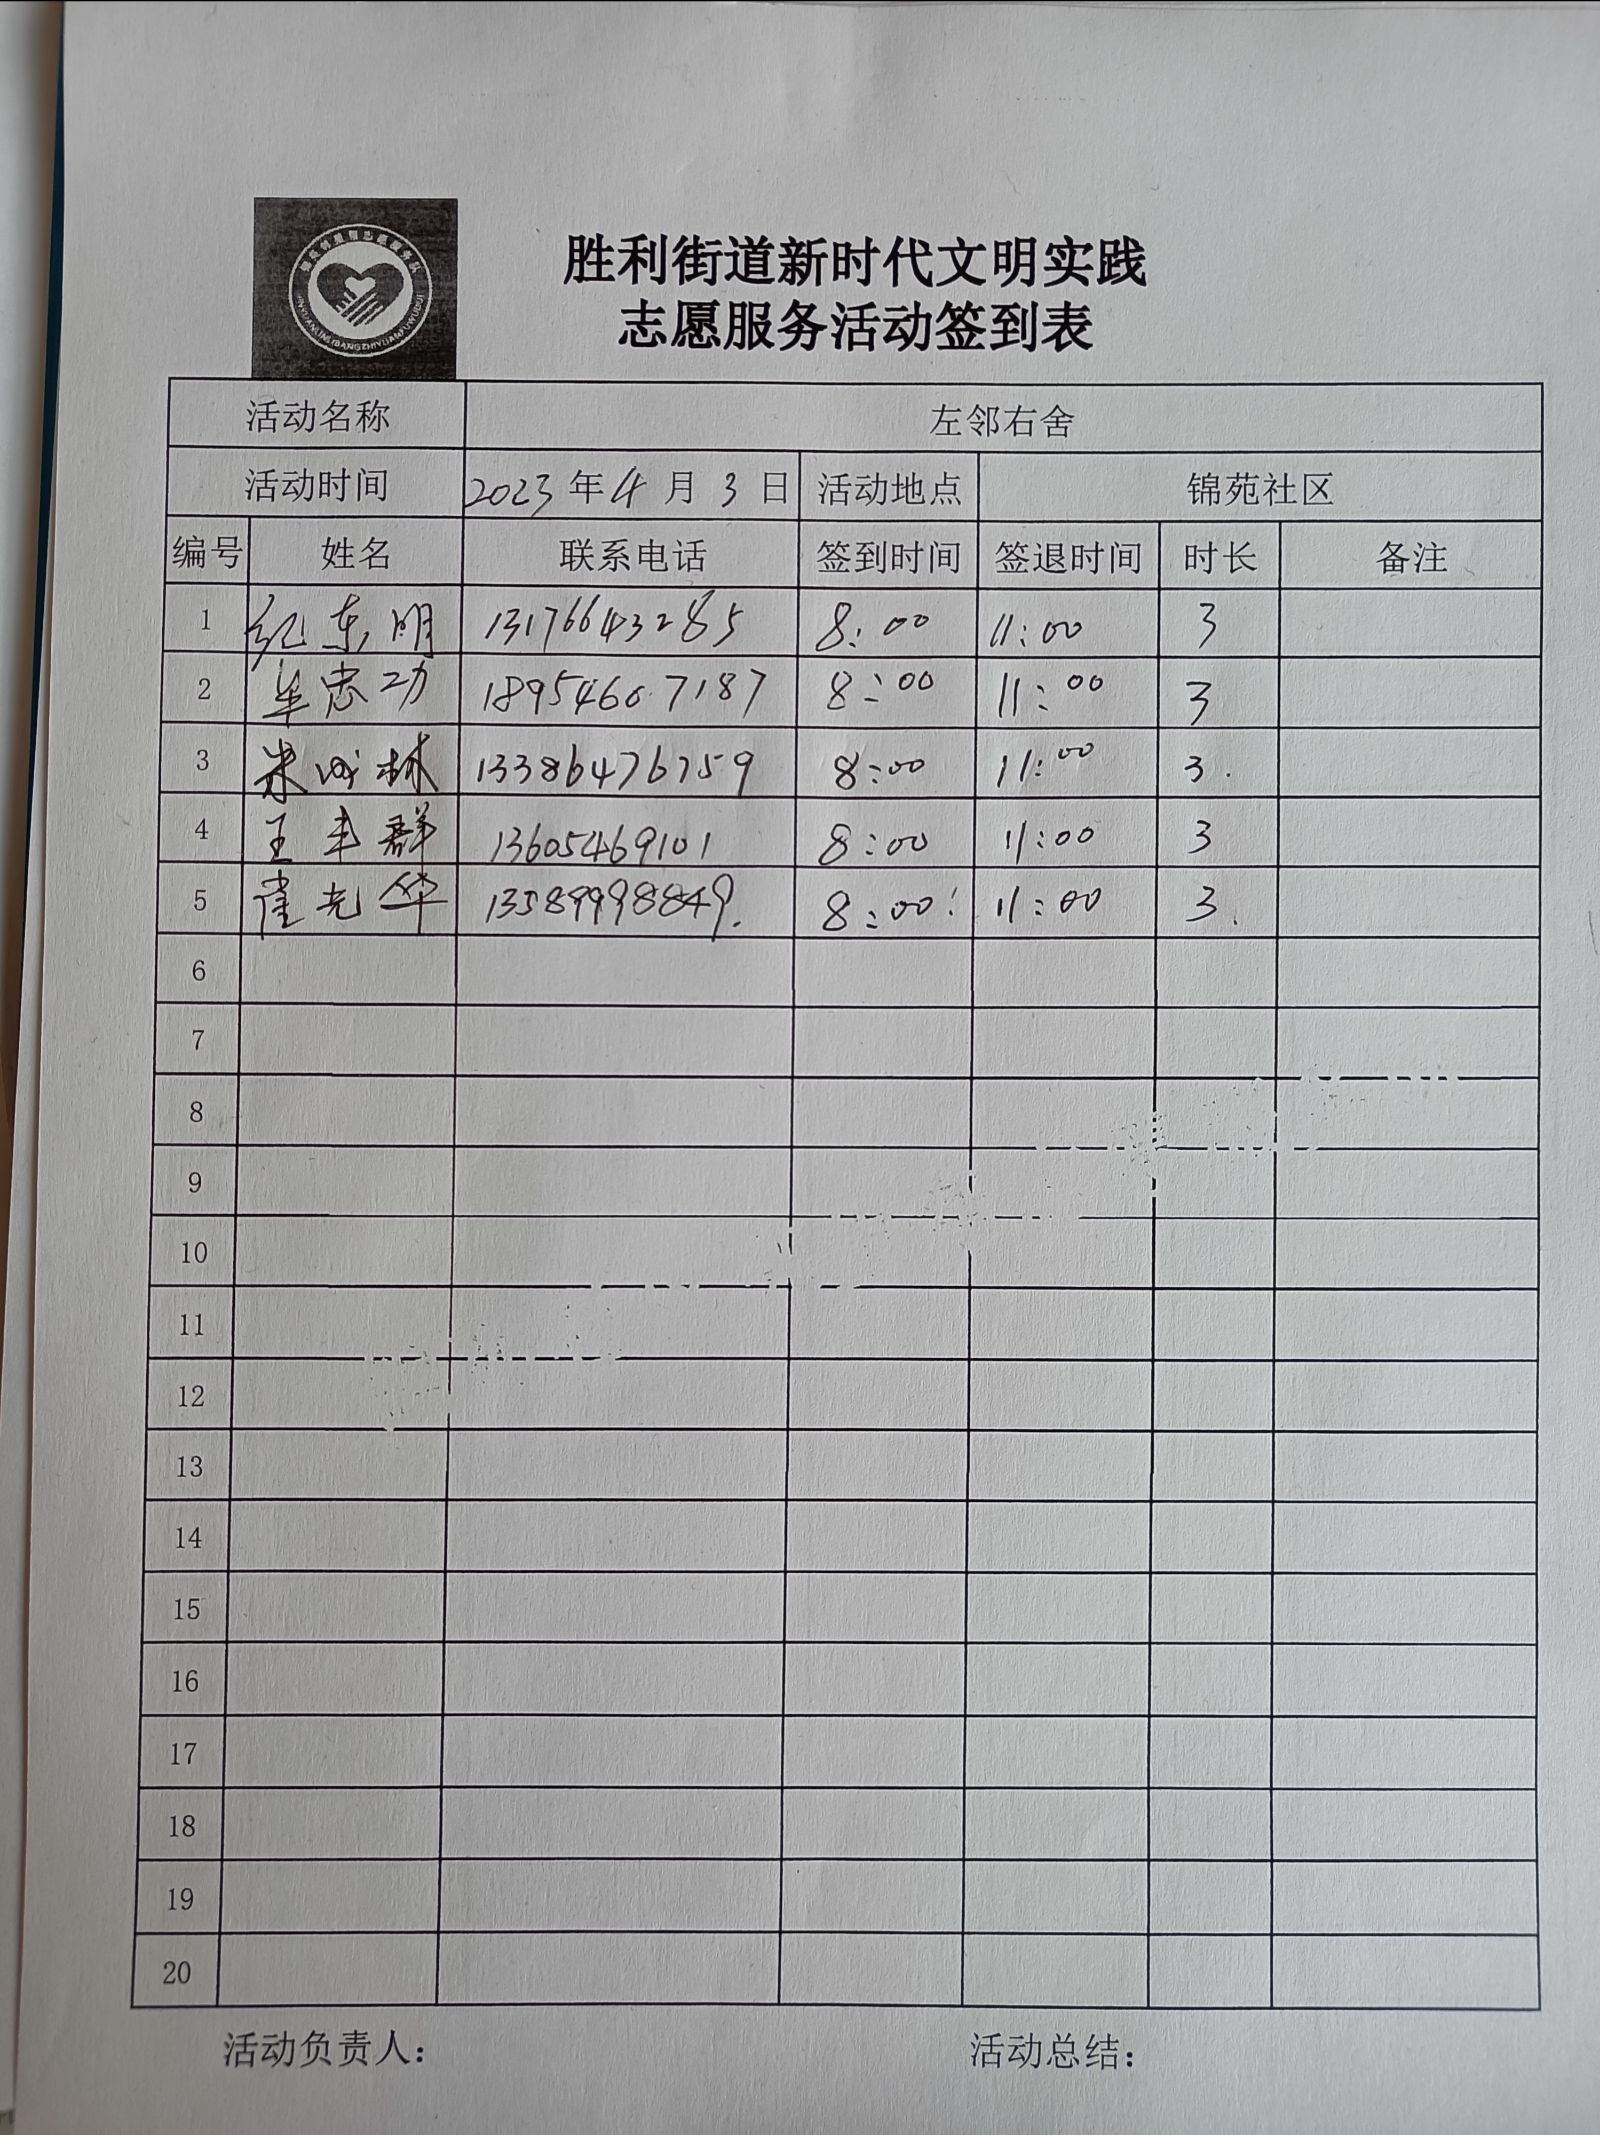 胜利街道新时代文明实践
志愿服务活动签到表
活动名称 左邻右舍
活动时间 2023年4月3日 活动地点 锦苑社区
编号 姓名 联系电话 签到时间 签退时间 时长 备注
1 纪东明 13176643285 8:00 11:00 3
2 牟忠功 18954607187 8:00 11:00 3
3 米成林 13386476759 8:00 11:00 3
4 王丰群 13605469101 8:00 11:00 3
5 崔光华 13589998849. 8:00 11:00 3
6
7
8
9
10
11
12
13
14
15
16
17
18
19
20
活动负责人： 活动总结：